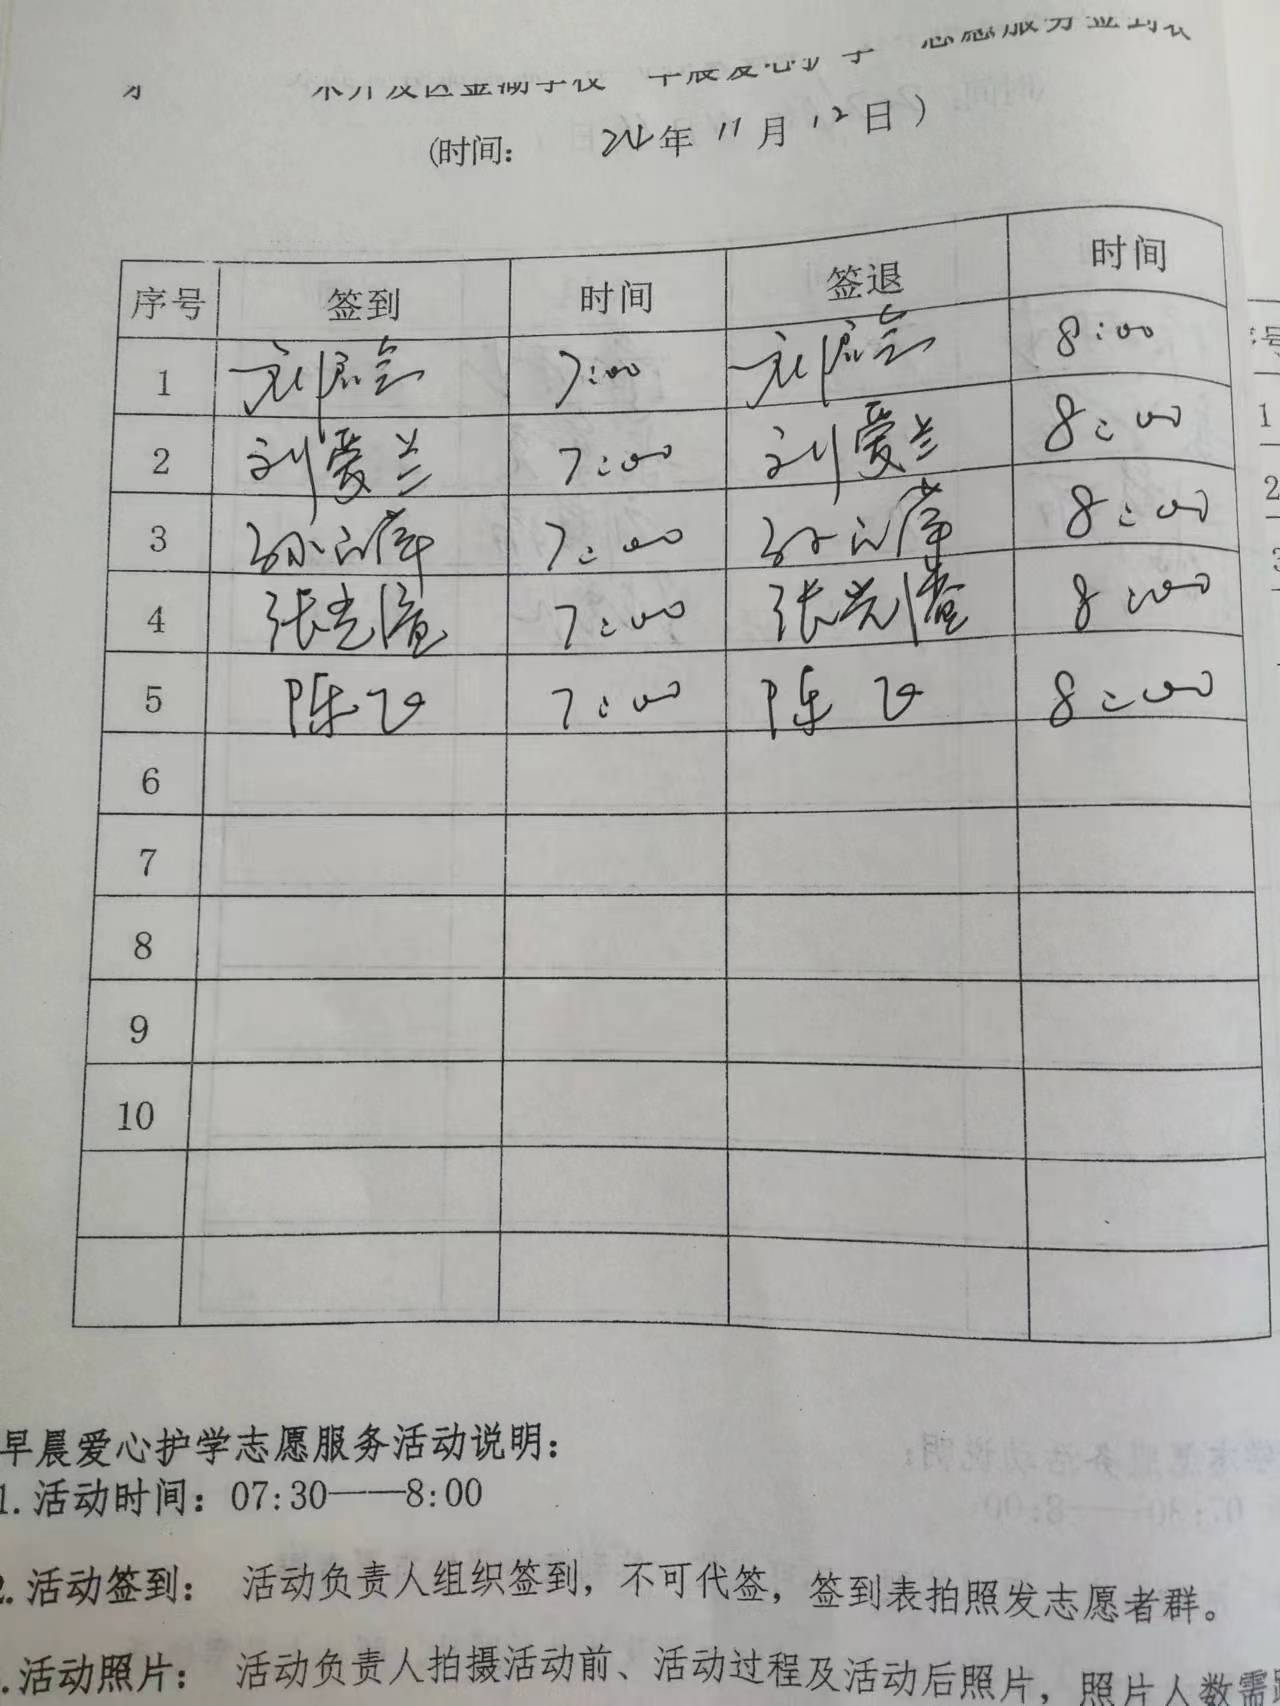 术开发区金湖学校 早晨爱心护学 志愿服务签到表
(时间： 24年11月12日)
序号 签到 时间 签退 时间
1 7:00 8:00
2 刘爱兰 7:00 刘爱兰 8:00
3 7:00 8:00
4 7:00 8:00
5 陈飞 7:00 陈飞 8:00
6
7
8
9
10
早晨爱心护学志愿服务活动说明：
1.活动时间：07:30——8:00
2.活动签到： 活动负责人组织签到，不可代签，签到表拍照发志愿者群。
.活动照片： 活动负责人拍摄活动前、活动过程及活动后照片，照片人数需